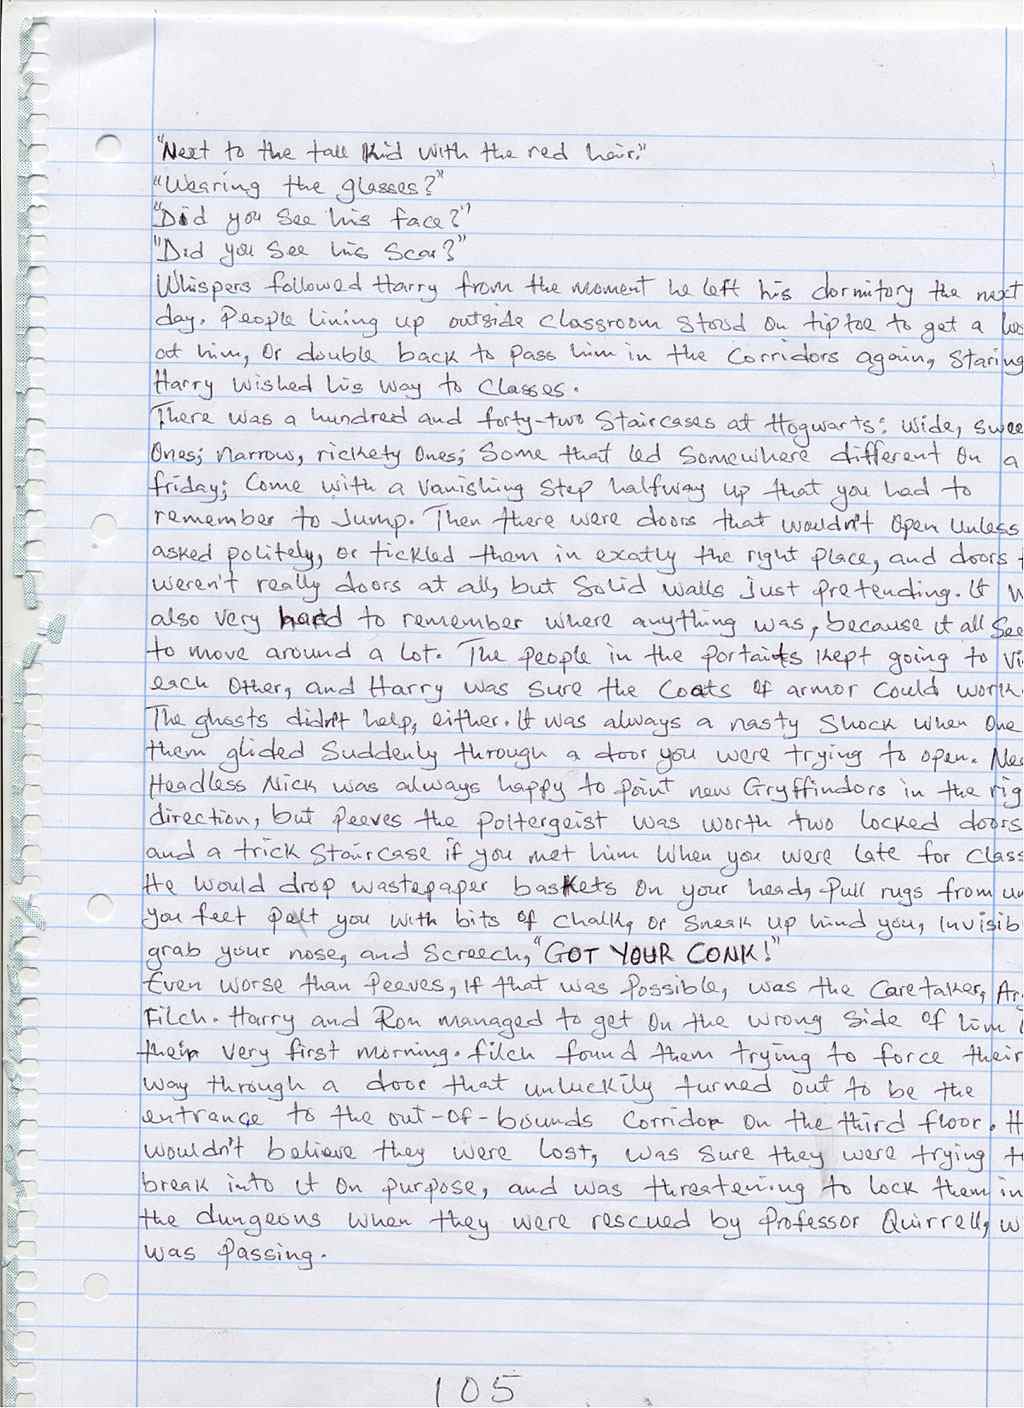 "Next to the tall kid with the red hair."
"Wearing the glasses?"
"Did you see his face?"
"Did you see his scar?"
Whispers followed Harry from the moment he left his dormitory the next
day. People lining up outside classroom stood on tiptoe to get a loo
at him, or double back to pass him in the corridors again, staring
Harry wished his way to classes.
There was a hundred and forty-two staircases at Hogwarts: wide, swee
ones; narrow, rickety ones; some that led somewhere different on a
friday; come with a vanishing step halfway up that you had to
remember to jump. Then there were doors that wouldn't open unless
asked politely, or tickled them in exatly the right place, and doors t
weren't really doors at all, but solid walls just pretending. It w
also very hard to remember where anything was, because it all see
to move around a lot. The people in the portaits kept going to vi
each other, and Harry was sure the coats of armor could walk.
The ghosts didn't help, either. It was always a nasty shock when one
them glided suddenly through a door you were trying to open. Nea
Headless Nick was always happy to point new Gryffindors in the rig
direction, but Peeves the Poltergeist was worth two locked doors
and a trick staircase if you met him when you were late for class
He would drop wastepaper baskets on your head, pull rugs from un
you feet pelt you with bits of chalk, or sneak up hind you, invisib
grab your nose, and screech, "GOT YOUR CONK!"
Even worse than Peeves, if that was possible, was the caretaker, Ar
Filch. Harry and Ron managed to get on the wrong side of him
their very first morning. filch found them trying to force their
way through a door that unluckily turned out to be the
entrance to the out-of-bounds corridor on the third floor. H
wouldn't believe they were lost, was sure they were trying t
break into it on purpose, and was threatening to lock them in
the dungeons when they were rescued by Professor Quirrell, w
was passing.
105